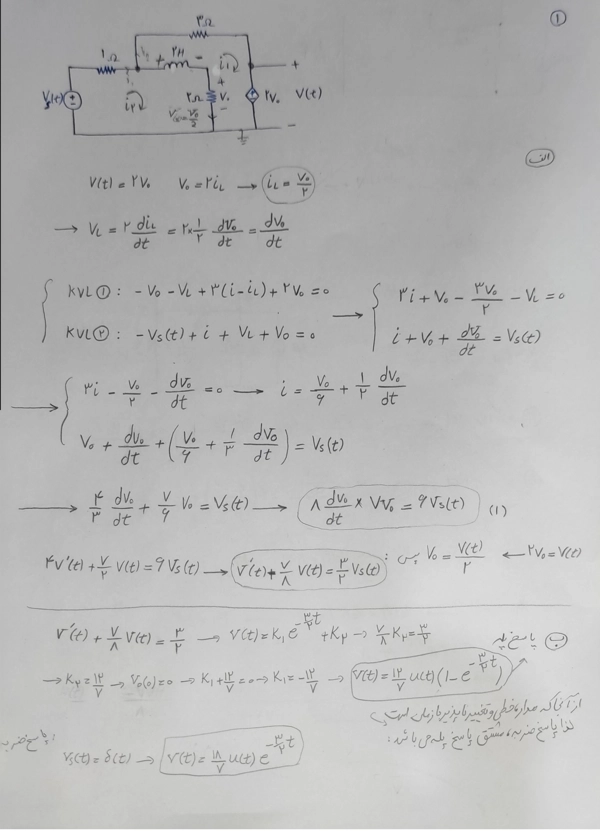 ①
۳Ω
۱Ω
+ ۲H -
i₁
+
Vs(t)
i₂
۲Ω
+
V₀
-
۲V₀
V(t)
-
الف
V(t) = ۲V₀ V₀ = ۲i_L → i_L = V₀/۲
→ V_L = ۲ di_L/dt = ۲×۱/۲ dV₀/dt = dV₀/dt
KVL①: -V₀ - V_L + ۳(i - i_L) + ۲V₀ = ۰ → ۳i + V₀ - ۳V₀/۲ - V_L = ۰
KVL②: -Vs(t) + i + V_L + V₀ = ۰ i + V₀ + dV₀/dt = Vs(t)
→ ۳i - V₀/۲ - dV₀/dt = ۰ → i = V₀/۶ + ۱/۲ dV₀/dt
V₀ + dV₀/dt + (V₀/۶ + ۱/۳ dV₀/dt) = Vs(t)
→ ۴/۳ dV₀/dt + ۷/۶ V₀ = Vs(t) → ۸ dV₀/dt × ۷V₀ = ۶Vs(t) (۱)
۴V'(t) + ۷/۲ V(t) = ۶Vs(t) → V'(t) + ۷/۸ V(t) = ۳/۲ Vs(t) : پس V₀ = V(t)/۲ ← ۲V₀ = V(t)
ب پاسخ پله
V'(t) + ۷/۸ V(t) = ۳/۲ → V(t) = K₁e^(-۳/۲ t) + K₂ → ۷/۸ K₂ = ۳/۲
→ K₂ = ۱۲/۷ → V₀(۰) = ۰ → K₁ + ۱۲/۷ = ۰ → K₁ = -۱۲/۷ → V(t) = ۱۲/۷ u(t)(۱ - e^(-۳/۲ t))
از آنجا که مدار خطی و تغییرناپذیر با زمان است پس
لذا پاسخ ضربه، مشتق پاسخ پله می باشد:
پاسخ ضربه:
Vs(t) = δ(t) → V(t) = ۱۸/۷ u(t) e^(-۳/۲ t)